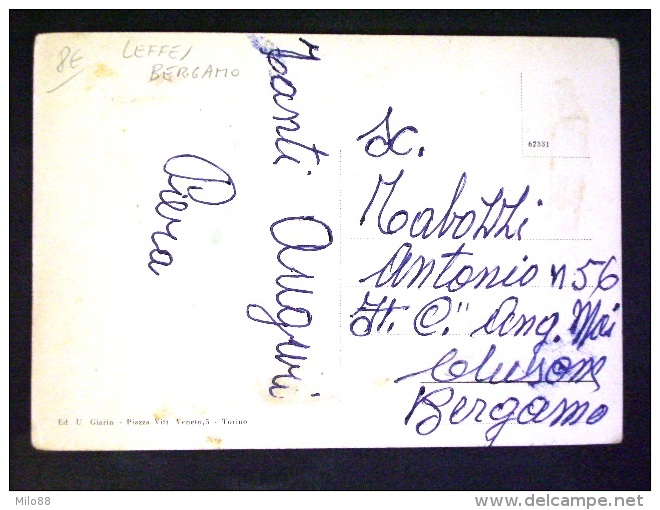 8€
LEFFE/
BERGAMO
Tanti Auguri
Piera
62331
Sc.
Tabozzi
Antonio n 56
Ist. C." Ang. Mai
Clusone
Bergamo
Ed U Giarin - Piazza Vitt Veneto,5 - Torino
Milo88
delcampe.net